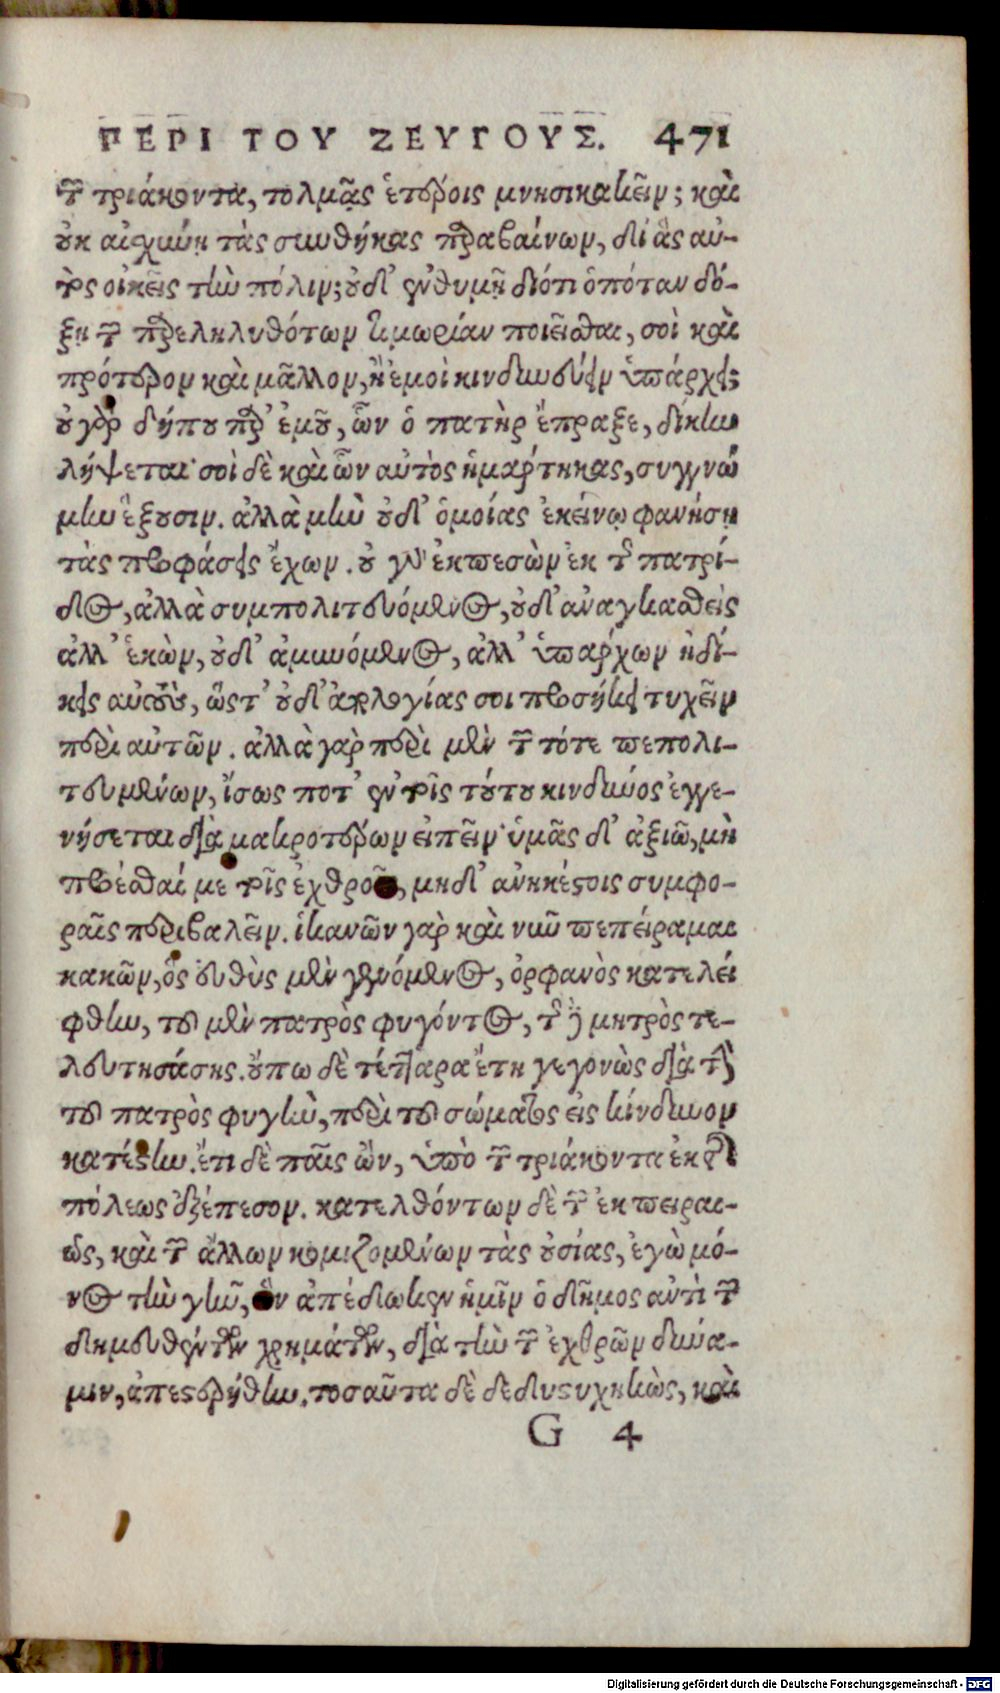 ΠΕΡΙ ΤΟΥ ΖΕΥΓΟΥΣ. 471
τῶν τριάκοντα, τολμᾷς ἑτέροις μνησικακεῖν; καὶ
οὐκ αἰσχύνῃ τὰς συνθήκας παραβαίνων, δι' ἃς αὐ-
τὸς οἰκεῖς τὴν πόλιν; οὐδ' ἐνθυμῇ διότι ὁπόταν δό-
ξῃ τῶν παρεληλυθότων τιμωρίαν ποιεῖσθαι, σοὶ καὶ
πρότερον καὶ μᾶλλον, ἢ ἐμοὶ κινδυνεύειν ὑπάρχει;
οὐ γὰρ δήπου παρ' ἐμοῦ, ὧν ὁ πατὴρ ἔπραξε, δίκην
λήψεται· σοὶ δὲ καὶ ὧν αὐτὸς ἡμάρτηκας, συγγνώ
μην ἕξουσιν. ἀλλὰ μὴν οὐδ' ὁμοίας ἐκείνῳ φανήσῃ
τὰς προφάσεις ἔχων. οὐ γὰρ ἐκπεσὼν ἐκ τῆς πατρί-
δος, ἀλλὰ συμπολιτευόμενος, οὐδ' ἀναγκασθεὶς
ἀλλ' ἑκὼν, οὐδ' ἀμυνόμενος, ἀλλ' ὑπάρχων ἠδί-
κεις αὐτοὺς, ὥστ' οὐδ' ἀπολογίας σοι προσήκει τυχεῖν
περὶ αὐτῶν. ἀλλὰ γὰρ περὶ μὲν τῶν τότε πεπολι-
τευμένων, ἴσως ποτ' ἐν τοῖς τούτου κινδύνοις ἐγγε-
νήσεται διὰ μακροτέρων εἰπεῖν· ὑμᾶς δ' ἀξιῶ, μὴ
προέσθαί με τοῖς ἐχθροῖς, μηδ' ἀνηκέστοις συμφο-
ραῖς περιβαλεῖν. ἱκανῶν γὰρ καὶ νῦν πεπείραμαι
κακῶν, ὃς εὐθὺς μὲν γενόμενος, ὀρφανὸς κατελεί
φθην, τοῦ μὲν πατρὸς φυγόντος, τῆς δὲ μητρὸς τε-
λευτησάσης. οὔπω δὲ τέτταρα ἔτη γεγονὼς διὰ τὴν
τοῦ πατρὸς φυγὴν, περὶ τοῦ σώματος εἰς κίνδυνον
κατέστην. ἔτι δὲ παῖς ὢν, ὑπὸ τῶν τριάκοντα ἐκ τῆς
πόλεως ἐξέπεσον. κατελθόντων δὲ τῶν ἐκ πειραι-
ῶς, καὶ τῶν ἄλλων κομιζομένων τὰς οὐσίας, ἐγὼ μό-
νος τὴν γῆν, ἣν ἀπέδωκεν ἡμῖν ὁ δῆμος ἀντὶ τῶν
δημευθέντων χρημάτων, διὰ τὴν τῶν ἐχθρῶν δύνα-
μιν, ἀπεστερήθην. τοσαῦτα δὲ δεδυστυχηκὼς, καὶ
G 4
Digitalisierung gefördert durch die Deutsche Forschungsgemeinschaft - DFG